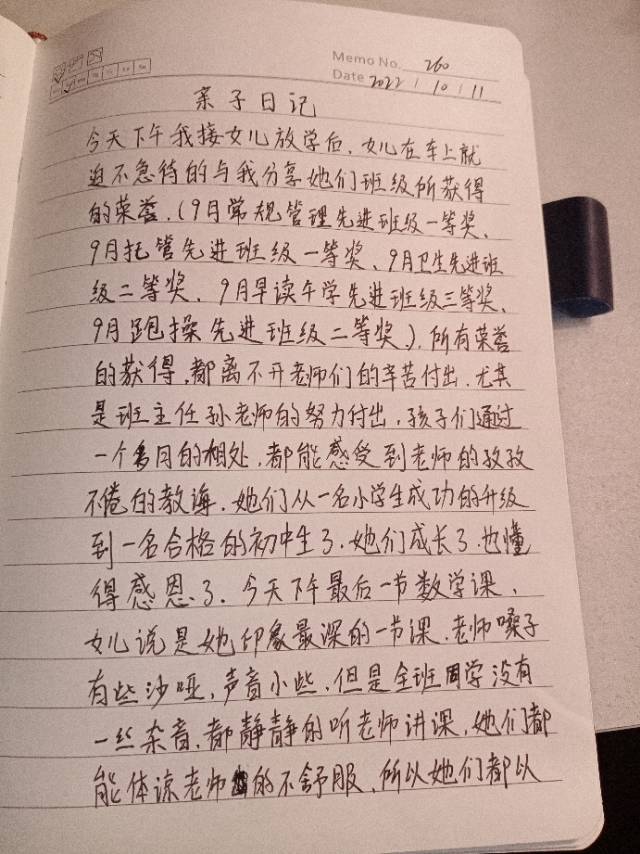 Memo No. 260
Date 2022 / 10 / 11
亲子日记
今天下午我接女儿放学后，女儿在车上就
迫不急待的与我分享她们班级所获得
的荣誉，（9月常规管理先进班级一等奖、
9月托管先进班级一等奖、9月卫生先进班
级二等奖、9月早读午学先进班级三等奖、
9月跑操先进班级二等奖）。所有荣誉
的获得，都离不开老师们的辛苦付出，尤其
是班主任孙老师的努力付出，孩子们通过
一个多月的相处，都能感受到老师的孜孜
不倦的教诲，她们从一名小学生成功的升级
到一名合格的初中生了，她们成长了，也懂
得感恩了。今天下午最后一节数学课，
女儿说是她印象最深的一节课，老师嗓子
有些沙哑，声音小些，但是全班同学没有
一丝杂音，都静静的听老师讲课，她们都
能体谅老师的不舒服，所以她们都以